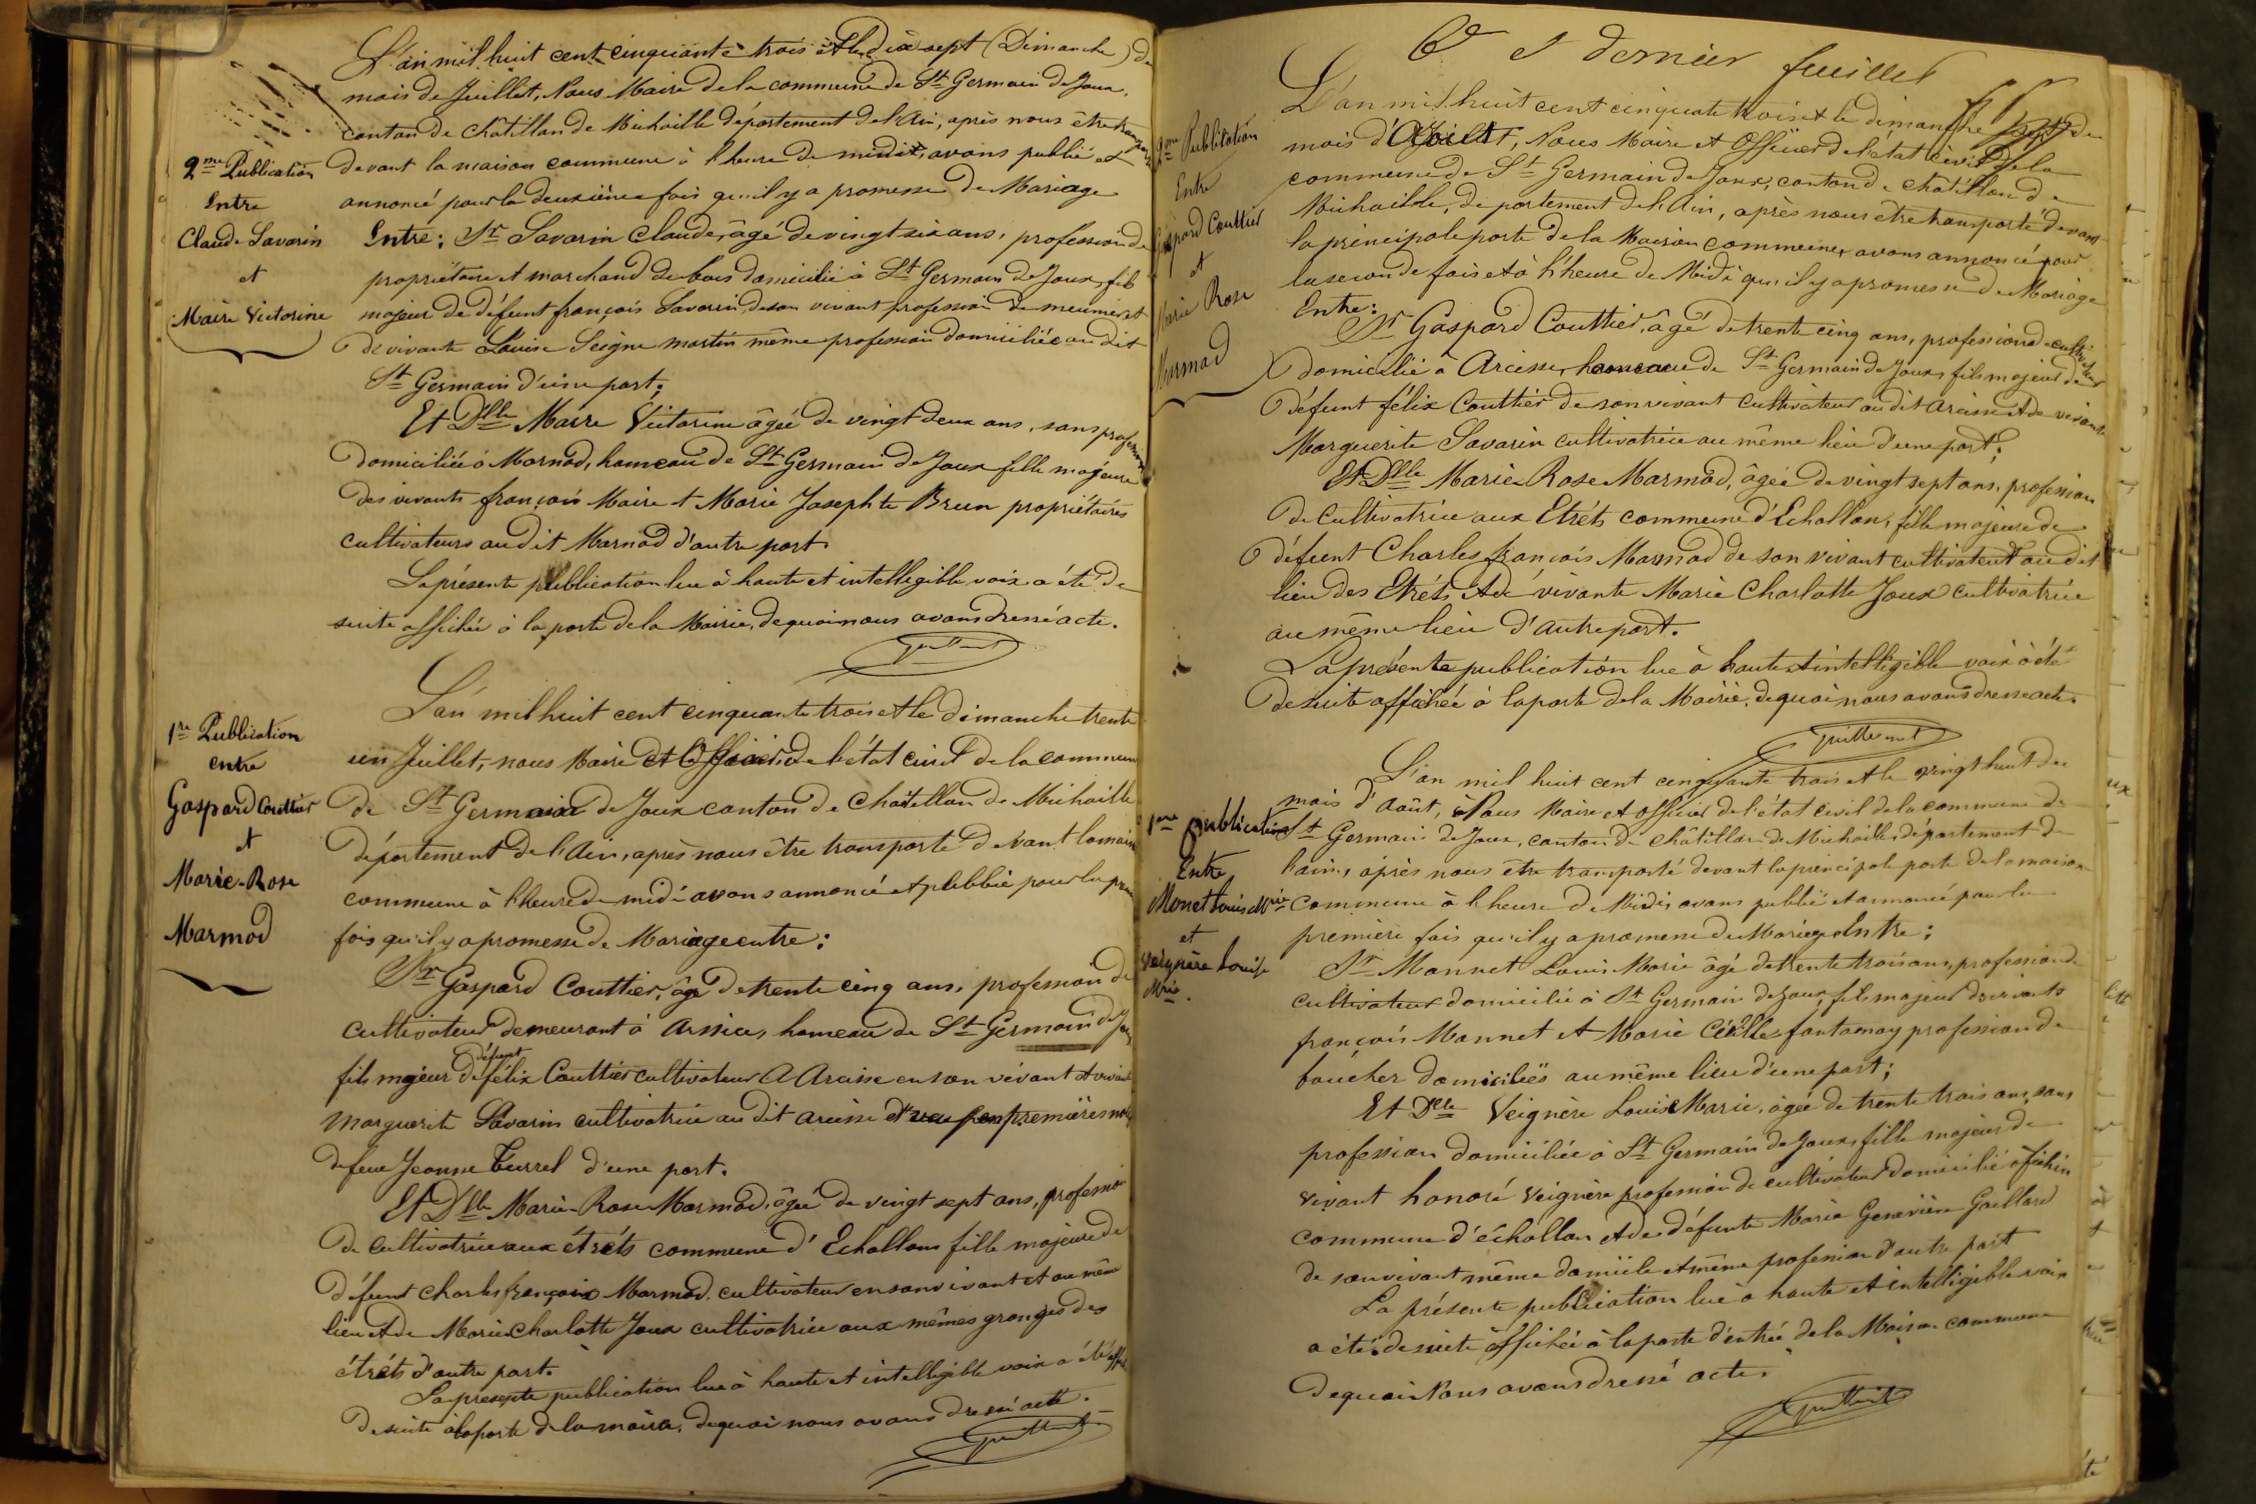 L'an mil huit cent cinquante trois et le dix sept (Dimanche) de
mois de Juillet, Nous Maire de la commune de St Germain de Joux,
canton de Châtillon de Michaille département de l'Ain, après nous être transporté
devant la maison commune à l'heure de midi, avons publié et
annoncé pour la deuxième fois qu'il y a promesse de Mariage
2me Publication
Entre
Claude Savarin
et
Maire Victorine
Entre: Sr Savarin Claude, âgé de vingt six ans, profession de
propriétaire et marchand de bois domicilié à St Germain de Joux, fils
majeur de défunt françois Savarin, de son vivant profession de meunier et
de vivante Louise Seigne martin même profession domiciliée au dit
St Germain d'une part;
Et Dlle Maire Victorine âgée de vingt deux ans, sans profession
domiciliée à Marnod, hameau de St Germain de Joux fille majeure
des vivants françois Maire et Marie Josephte Brun propriétaires
cultivateurs au dit Marnod d'autre part.
La présente publication lue à haute et intellegible voix a été de
suite affichée à la porte de la Mairie, de quoi nous avons dressé acte.
1re Publication
entre
Gaspard Couttier
et
Marie-Rose
Marmod
L'an mil huit cent cinquante trois et le dimanche trente
un Juillet, nous Maire et Officier de l'état civil de la commune
de St Germain de Joux canton de Châtillon de Michaille
département de l'Ain, après nous être transporté devant la maison
commune à l'heure de midi avons annoncé et publié pour la
fois qu'il y a promesse de Mariage entre:
Sr Gaspard Couttier, âgé de trente cinq ans, profession de
cultivateur demeurant à Arssices, hameau de St Germain de Joux
fils majeur de défunt félix Couttier cultivateur à Arcisse en son vivant et vivante
Marguerite Savarin cultivatrice au dit Arcisse et veuf en premières
de feue Jeanne Turrel d'une part.
Et Dlle Marie-Rose Marmod, âgée de vingt sept ans, profession
de cultivatrice aux étrêts commune d'Echallon fille majeure de
défunt Charles françois Marmod cultivateur en son vivant et au même
lieu et de Marie Charlotte Joux cultivatrice aux mêmes granges des
étrêts d'autre part.
La présente publication lue à haute et intelligible voix a été
de suite à la porte de la mairie, de quoi nous avons dressé acte.
6e et dernier feuillet
2me Publication
Entre
Gaspard Couttier
et
Marie Rose
Marmod
L'an mil huit cent cinquante trois et le dimanche sept de
mois d'Août, Nous Maire et Officier de l'état civil de la
commune de St Germain de Joux, canton de Châtillon de
Michaille, département de l'Ain, après nous être transporté devant
la principale porte de la Maison commune, avons annoncé pour
la seconde fois et à l'heure de Midi qu'il y a promesse de Mariage
Entre:
Sr Gaspard Couttier, âgé de trente cinq ans, profession de cultivateur
domicilié à Arcisse, hameau de St Germain de Joux, fils majeur de
défunt félix Couttier de son vivant cultivateur au dit Arcisse et de vivante
Marguerite Savarin cultivatrice au même lieu d'une part;
Et Dlle Marie Rose Marmod, âgée de vingt sept ans, profession
de cultivatrice aux Etrêts commune d'Echallon, fille majeure de
défunt Charles françois Marmod de son vivant cultivateur au dit
lieu des Etrêts et de vivante Marie Charlotte Joux cultivatrice
au même lieu d'autre part.
La présente publication lue à haute et intelligible voix a été
de suite affichée à la porte de la Mairie, de quoi nous avons dressé acte.
1ere publication
Entre
Monet Louis Mrie
et
Veignère Louise
Mrie.
L'an mil huit cent cinquante trois et le vingt huit de
mois d'Août, Nous Maire et officier de l'état civil de la commune de
St Germain de Joux, canton de Châtillon de Michaille, département de
l'ain, après nous être transporté devant la principale porte de la maison
commune à l'heure de Midi, avons publié et annoncé pour la
première fois qu'il y a promesse de Mariage Entre:
Sr Monnet Louis Marie âgé de trente trois ans, profession de
cultivateur domicilié à St Germain de Joux, fils majeur de vivants
françois Monnet et Marie Cécille fontanay profession de
boucher domiciliés au même lieu d'une part;
Et Dlle Veignère Louise Marie, âgée de trente trois ans, sans
profession domiciliée à St Germain de Joux, fille majeur de
vivant honoré Veignère profession de cultivateur domicilié à
commune d'échallon et de défunte Marie Geneviève Gaillard
de son vivant même domicile et même profession d'autre part
La présente publication lue à haute et intelligible voix
a été de suite affichée à la porte d'entrée de la Maison commune
de quoi Nous avons dressé acte.